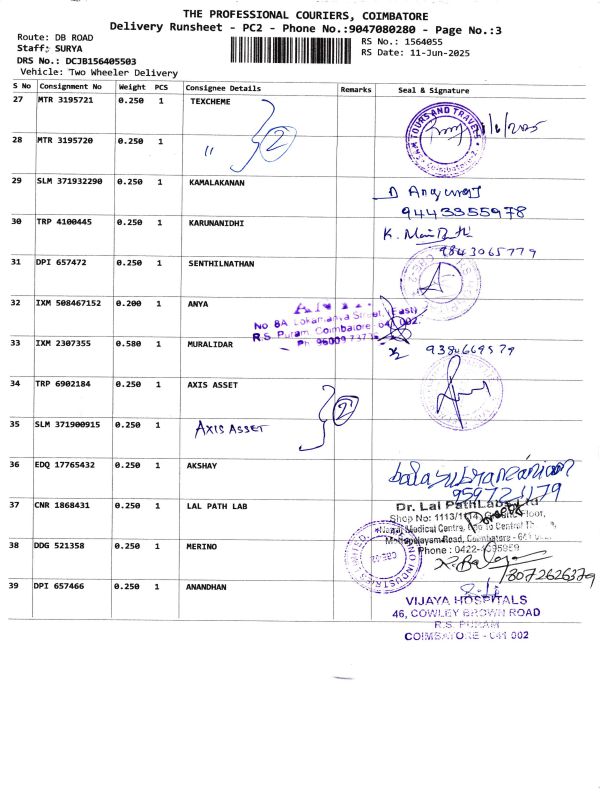 THE PROFESSIONAL COURIERS, COIMBATORE
Delivery Runsheet - PC2 - Phone No.:9047080280 - Page No.:3
Route: DB ROAD
Staff: SURYA
DRS No.: DCJB156405503
Vehicle: Two Wheeler Delivery
RS No.: 1564055
RS Date: 11-Jun-2025
S No Consignment No Weight PCS Consignee Details Remarks Seal & Signature
27 MTR 3195721 0.250 1 TEXCHEME
2
TOURS AND TRAVELS
Coimbatore
28 MTR 3195720 0.250 1 "
29 SLM 371932290 0.250 1 KAMALAKANAN
9443355978
30 TRP 4100445 0.250 1 KARUNANIDHI K.
9843065779
31 DPI 657472 0.250 1 SENTHILNATHAN
32 IXM 508467152 0.200 1 ANYA
No 8A Lokamanya Street, (East)
R.S. Puram, Coimbatore 002.
33 IXM 2307355 0.580 1 MURALIDAR
34 TRP 6902184 0.250 1 AXIS ASSET
2
35 SLM 371900915 0.250 1 AXIS ASSET
36 EDQ 17765432 0.250 1 AKSHAY balasubramaniam
37 CNR 1868431 0.250 1 LAL PATH LAB
Dr. Lal PathLabs Ltd
Shop No: 1113/ Floor,
Medical Centre, Central
Road, Coimbatore -
Phone : 0422-
38 DDG 521358 0.250 1 MERINO
INDUSTRIES LIMITED
8072626379
39 DPI 657466 0.250 1 ANANDHAN
VIJAYA HOSPITALS
46, COWLEY BROWN ROAD
R.S. PURAM
COIMBATORE - 641 002